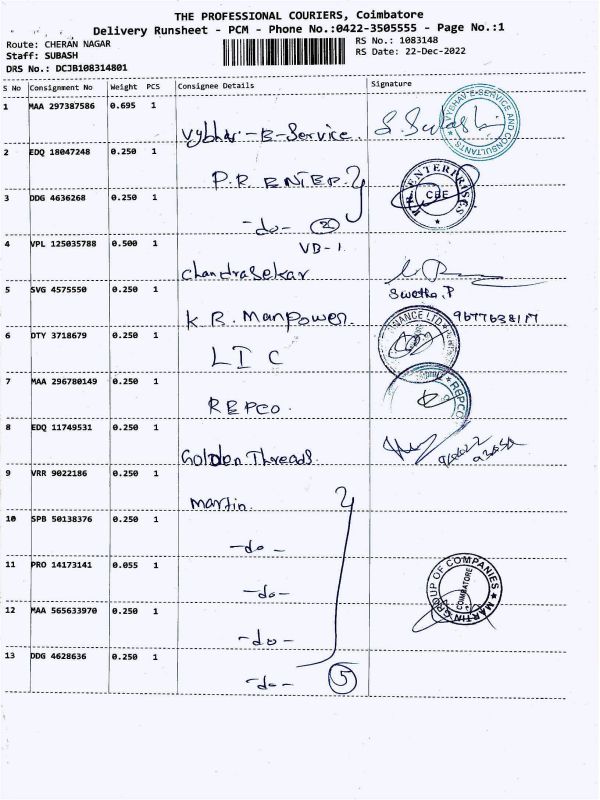 THE PROFESSIONAL COURIERS, Coimbatore
Delivery Runsheet - PCM - Phone No.:0422-3505555 - Page No.:1
Route: CHERAN NAGAR
RS No.: 1083148
Staff: SUBASH
RS Date: 22-Dec-2022
DRS No.: DCJB108314801
S No Consignment No Weight PCS Consignee Details Signature
1 MAA 297387586 0.695 1
Vybhav-E-Service.
VYBHAV E-SERVICE AND CONSULTANTS
2 EDQ 18047248 0.250 1
P.R ENTER.
ENTERPRISES
CBE
3 DDG 4636268 0.250 1
-do- 2
4 VPL 125035788 0.500 1
VB-1.
Chandrasekar
Swetha.P
5 SVG 4575550 0.250 1
K.R. Manpower.
9677638117
6 DTY 3718679 0.250 1
LIC
NANCE LTD
7 MAA 296780149 0.250 1
REPCO.
REPCO
8 EDQ 11749531 0.250 1
Golden Threads.
9 VRR 9022186 0.250 1
Martin.
10 SPB 50138376 0.250 1
-do-
11 PRO 14173141 0.055 1
-do-
MARTIN GROUP OF COMPANIES
COIMBATORE
12 MAA 565633970 0.250 1
-do-
13 DDG 4628636 0.250 1
-do- 5